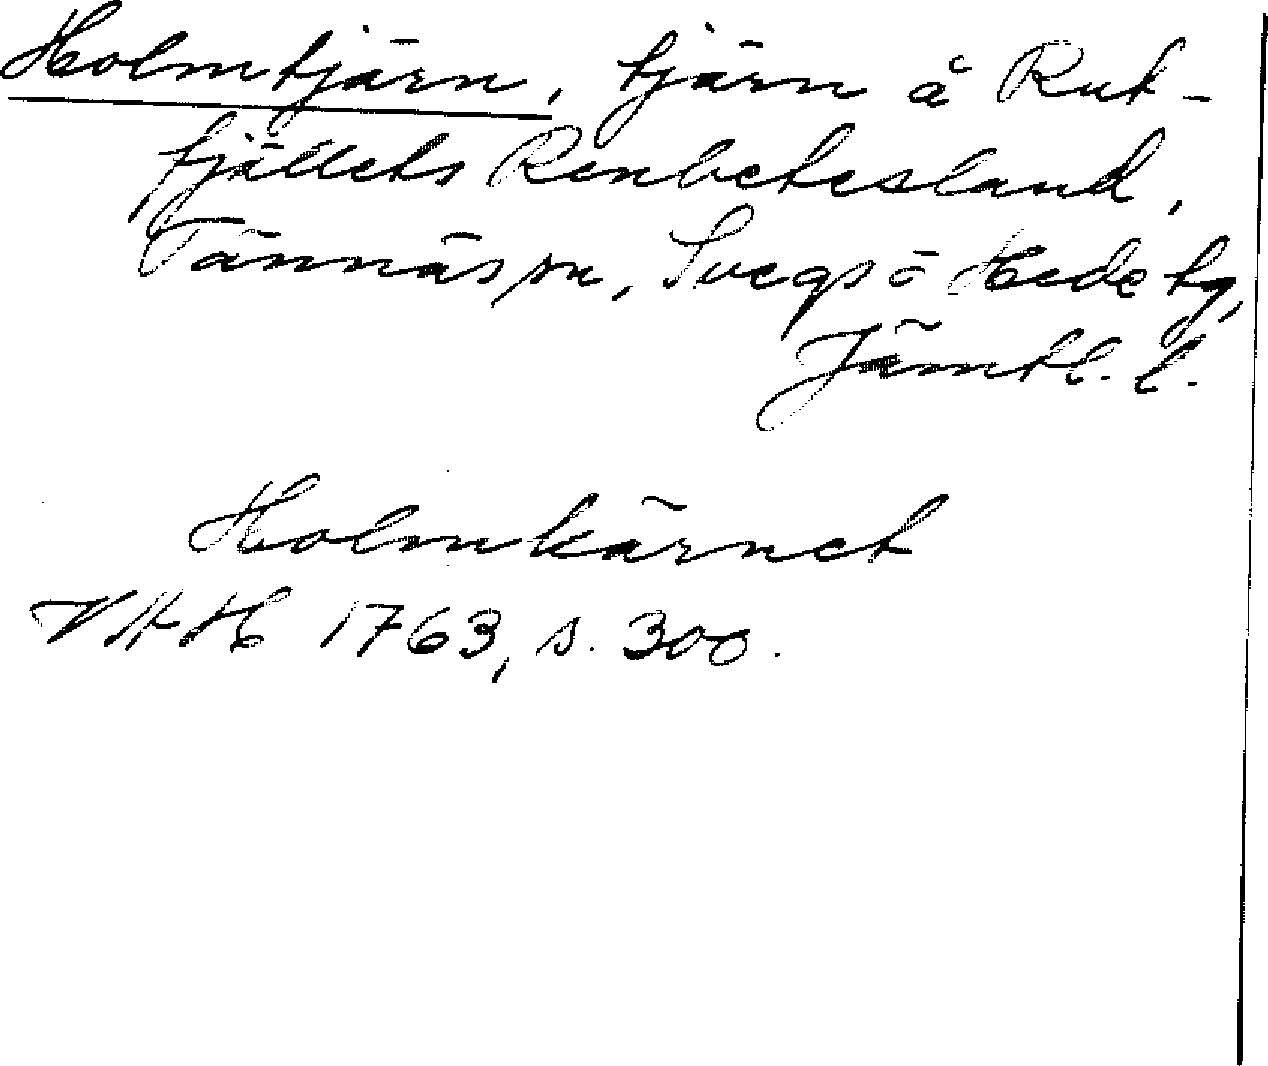 Holmtjärn, tjärn å Rut-
fjällets Renbetesland,
Tännäs sn, Svegs o Hede tg,
Jämtl. l.
Holmkärnet
VHH 1763, s. 300.